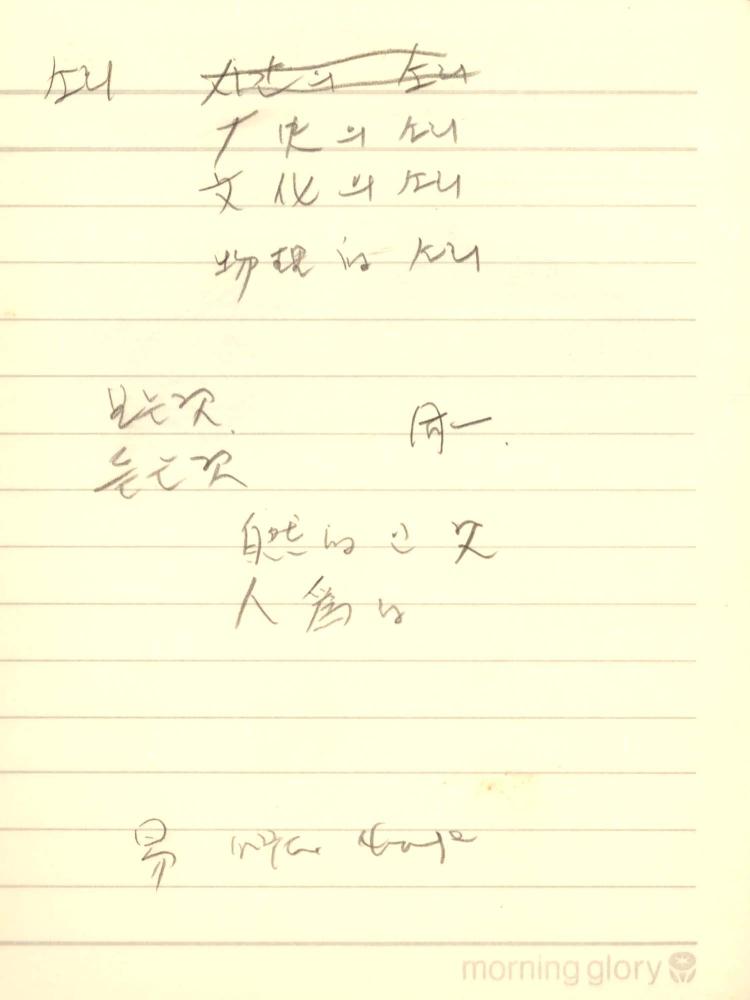 소리 시간의 소리
역史의 소리
文化의 소리
物理的 소리
보는것.
듣는것
同一.
自然的인 것
人爲的
易
morning glory